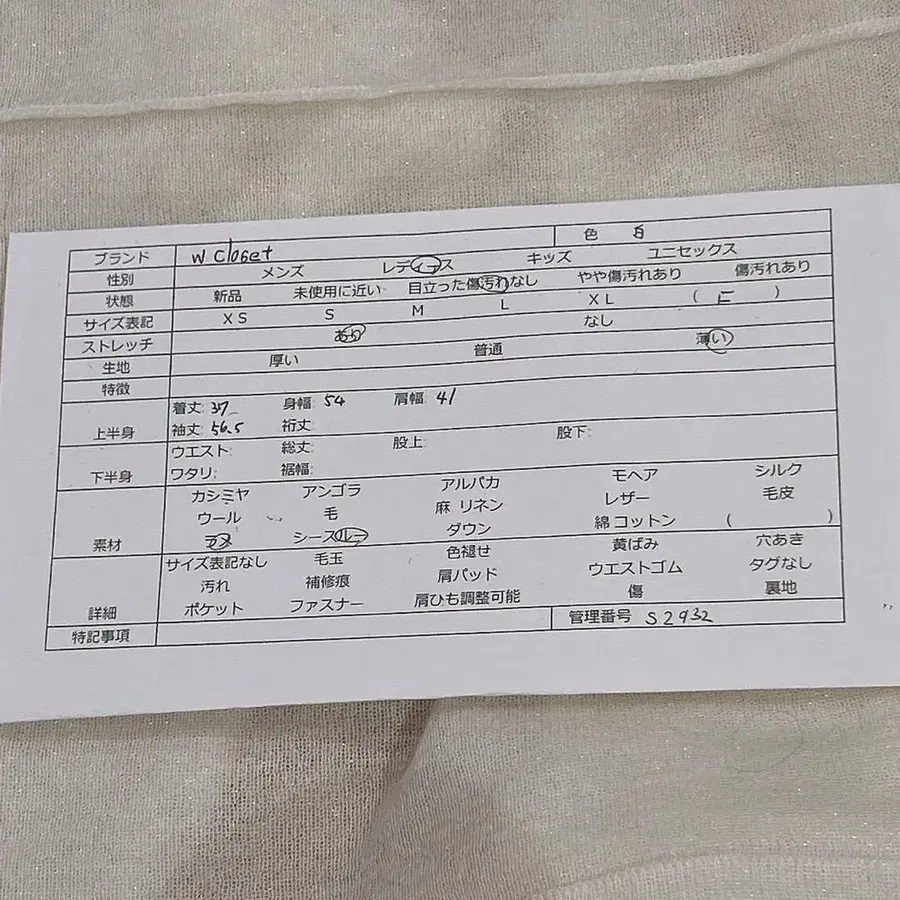 ブランド W Closet 色 白
性別 メンズ レディース キッズ ユニセックス
状態 新品 未使用に近い 目立った傷汚れなし やや傷汚れあり 傷汚れあり
サイズ表記 XS S M L XL ( F )
ストレッチ あり なし
生地 厚い 普通 薄い
特徴
上半身 着丈: 37 身幅: 54 肩幅: 41
袖丈: 56.5 裄丈:
下半身 ウエスト: 総丈: 股上: 股下:
ワタリ: 裾幅:
素材 カシミヤ アンゴラ アルパカ モヘア シルク
ウール 毛 麻 リネン レザー 毛皮
ラメ シースルー ダウン 綿 コットン ( )
詳細 サイズ表記なし 毛玉 色褪せ 黄ばみ 穴あき
汚れ 補修痕 肩パッド ウエストゴム タグなし
ポケット ファスナー 肩ひも調整可能 傷 裏地
特記事項 管理番号 S2932